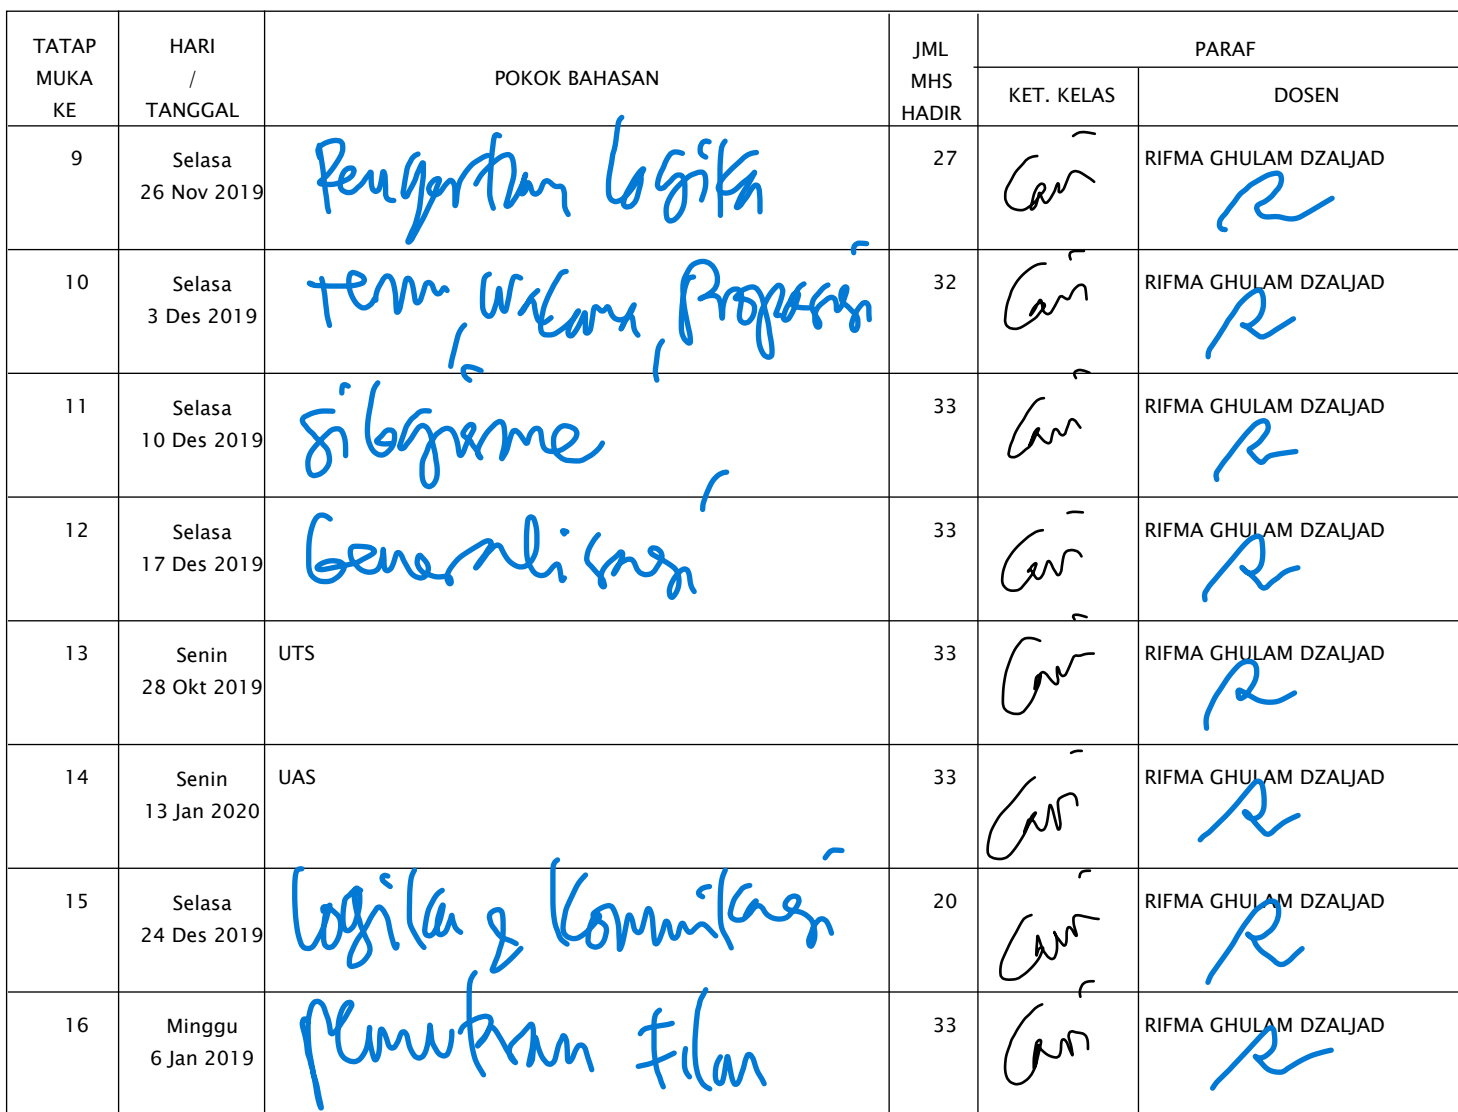 TATAP MUKA KE HARI / TANGGAL POKOK BAHASAN JML MHS HADIR PARAF
KET. KELAS DOSEN
9 Selasa 26 Nov 2019 Pengertian Logika 27 RIFMA GHULAM DZALJAD
10 Selasa 3 Des 2019 term, wacana, Proposisi 32 RIFMA GHULAM DZALJAD
11 Selasa 10 Des 2019 silogisme 33 RIFMA GHULAM DZALJAD
12 Selasa 17 Des 2019 Generalisasi 33 RIFMA GHULAM DZALJAD
13 Senin 28 Okt 2019 UTS 33 RIFMA GHULAM DZALJAD
14 Senin 13 Jan 2020 UAS 33 RIFMA GHULAM DZALJAD
15 Selasa 24 Des 2019 Logika & Komunikasi 20 RIFMA GHULAM DZALJAD
16 Minggu 6 Jan 2019 Pemutaran Film 33 RIFMA GHULAM DZALJAD